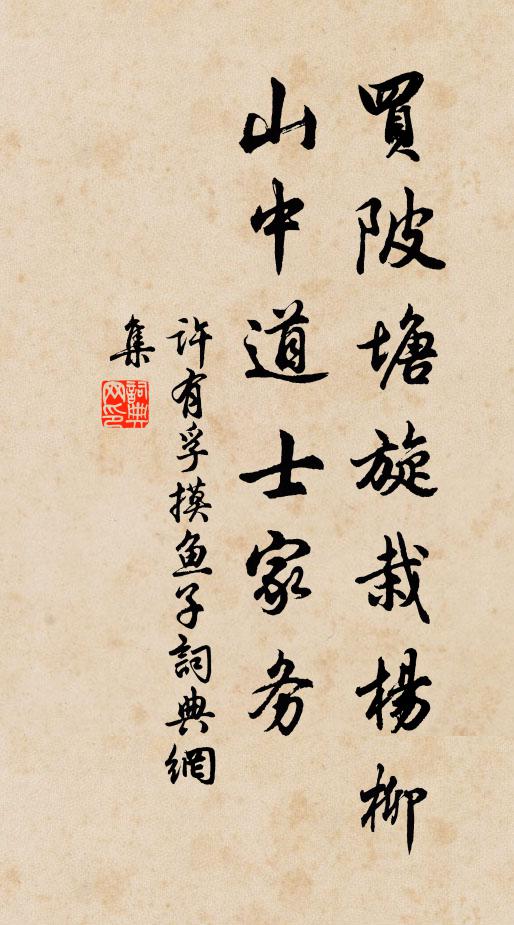 買陂塘旋栽楊柳
山中道士家务
许有孚摸鱼子詞典網
集
詞典
网印